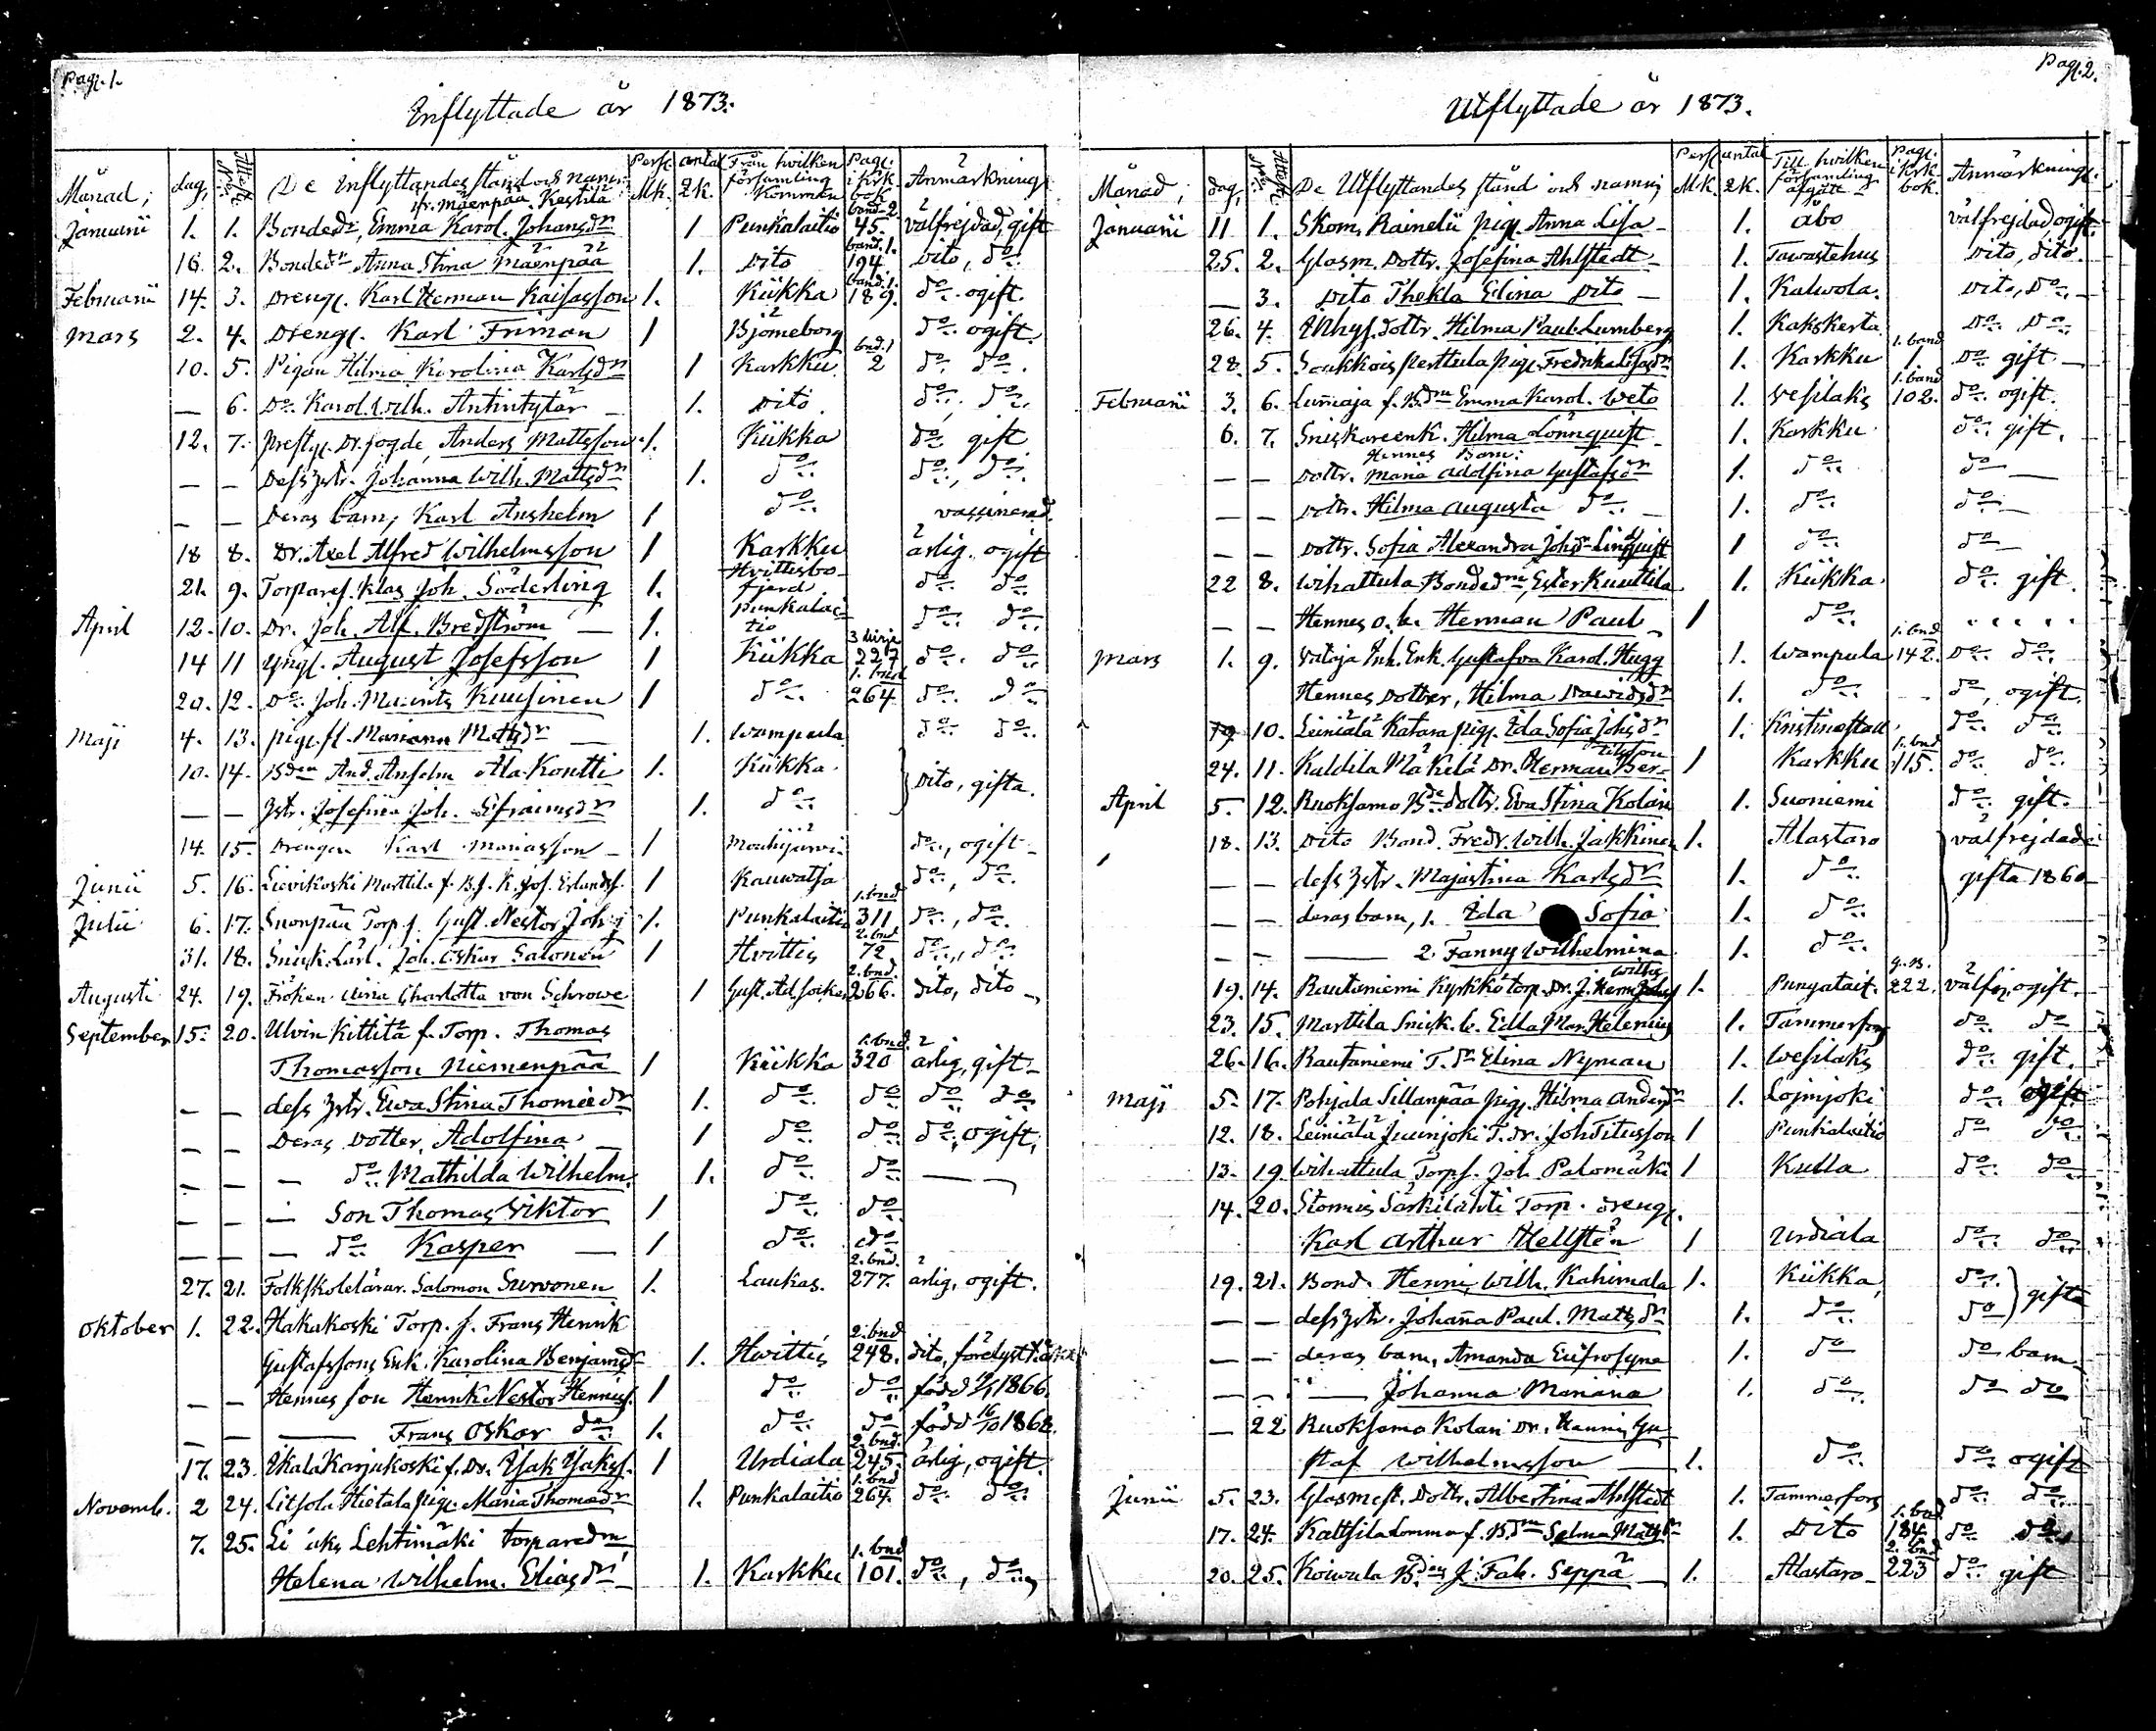 Pag. 1.
Inflyttade år 1873.
Månad, dag, Attest N:o De Inflyttandes stånd och namn Pers. antal Mk. Qk. Från hvilken församling Kommen Pag. i krk. bok Anmärkning
fr. Mäenpää Kestilä
Januarii 1. 1. Bondedr, Emma Karol. Johansdr 1 Punkalaitio band. 2. 45. välfrejdad, gift
16. 2. Bondedr Anna Stina Mäenpää 1. Dito band. 1. 194 Dito, do
Februarii 14. 3. Dreng. Karl Herman Kaisasson 1. Kiikka band. 1. 189. do ogift.
Mars 2. 4. Dreng. Karl Friman 1 Björneborg do ogift.
10. 5. Pigan Hilma Karolina Karlsdr 1 Karkku bnd. 1 2 do do.
— 6. Do Karol. Wilh. Antintytär — 1. Dito. do, do.
12. 7. Prestg. Dr. fogde, Anders Mattsson 1. Kiikka do gift
— — Dess hstr. Johanna Wilh. Mattsdr 1. do do, do.
— — Deras barn, Karl Anshelm 1 do vaccinerad.
18 8. Dr. Axel Alfred Wilhelmsson 1 Karkku ärlig, ogift
21. 9. Torparef. Klas Joh. Söderling 1. Hvittisbofjerd do do
April 12. 10. Dr. Joh. Alf. Bredström — 1. Punkalaitio do do
14 11 Yngl. August Josefsson 1 Kiikka 227 do. do
20. 12. Do Joh. Mauritz Kuusinen 1 do 1. bnd 264 do do
Maji 4. 13. pig. fl. Mariana Matsdr — 1. Wampula do do.
10. 14. Bden And. Anselm Ala-Kontti 1. Kiikka. Dito, gifta.
— — Hstr. Josefina Joh. Efraimsdr 1. do
14. 15. Drengen Karl Mariasson — 1 Mouhijärvi do, ogift —
Junii 5. 16. Lievikoski Marttila f. B. s. K. Jos. Erlandss. 1 Kauwatsa do, do.
Julii 6. 17. Snonpää Torp. s. Gust. Nestor Joh. 1. Punkalaitio 1. bnd 311 do, do.
31. 18. Snick. Lärl. Joh. Oskar Salonen 1 Hvittis 2. bnd 72 do, do
Augusti 24. 19. Fröken Aina Charlotta von Schrowe 1 Gust. Ad. socken 2. bnd. 266. dito, dito —
September 15. 20. Ulvin Kittilä f. Torp. Thomas
Thomasson Niemenpää 1 Kiikka 1. bnd. 320 ärlig, gift —
— — dess hstr. Ewa Stina Thomædr 1. do do do do
— — Deras dotter, Adolfina — 1 do do do, ogift,
— — — do Mathilda Wilhelm. 1. do do — —
— — — Son Thomas Viktor 1 do do
— — — do Kasper — 1 do do
27. 21. Folkskolelärar. Salomon Survonen 1. Laukas. 2. bnd. 277. ärlig, ogift.
Oktober 1. 22. Hakakoski Torp. f. Frans Henrik
Gustafssons Enk. Karolina Benjamsdr 1. Hvittis 2. bnd 248. dito,
— — Hennes son Henrik Nestor Henriss. 1 do do född 1866.
— — — Frans Oskar do 1. do do född 16/10 1868.
17. 23. Ekala Karjukoski f. Dr. Isak Isakss. 1 Urdiala 2. bnd. 245. ärlig, ogift.
Novemb. 2 24. Litsola Hietala pig. Maria Thomædr 1. Punkalaitio 1. bnd 264. do do.
7. 25. Lehtimäki torparedm
Helena Wilhelm. Eliasdr 1. Karkku 1. bnd 101. do, do
Pag. 2.
Utflyttade år 1873.
Månad, dag, Attest N:o De Utflyttandes stånd och namn, Pers. antal Mk. Qk. Till hvilken församling afgått Pag. i krk. bok. Anmärkning.
Januarii 11 1. Skom. Rainelii pig. Anna Lisa — 1. Åbo välfrejdad ogift.
25. 2. Glasm. Dottr. Josefina Ahlstedt — 1. Tawastehus Dito, dito.
— 3. Dito Thekla Elina Dito — 1. Kalwola. Dito, Do —
26. 4. Inhys. dottr. Hilma Paul. Lumberg 1. Kakskerta Do Do
28. 5. Soukkois Perttula pig. Fredrika Lisasdr 1. Karkku 1. band 1. Do gift —
Februarii 3. 6. Lumaja f. Bdm Emma Karol. Weto 1. Vesilaks 1. band 102. do ogift.
6. 7. Sniskareenk. Hilma Lönnquist — 1. Karkku do gift.
Hennes Barn:
— — Dottr. Maria Adolfina Gustafsdr 1. do do —
— — Dottr. Hilma Augusta do — 1. do do —
— — Dottr. Sofia Alexandra Johsdr Linquist 1 do do —
22 8. Wihattula Bondedm, Ester Kuuttila 1. Kiikka do gift.
— — Hennes o. b. Herman Paul — 1 do . . . . .
Mars 1. 9. Vataja Inh. Enk. Gustafva Karol. Hugg 1. Wampula 1. bnd 142. Do do.
Hennes Dotter, Hilma Davidsdr 1. do do, ogift.
19 10. Leiniälä Katara pig. Ida Sofia Johsdr 1. Kristinestad do do
24. 11. Kaldila Mäkelä Dr. Herman Bertilsson 1 Karkku 1. bnd 115. do do
April 5. 12. Ruoksamo Bde dottr. Eva Stina Kolari 1. Suoniemi do gift.
18. 13. Dito Bond. Fredr. Wilh. Jakkinen 1. Alastaro välfrejdade
— — dess hstr. Majastina Karlsdr 1. do gifta 1860
— — deras barn, 1. Ida Sofia 1. do
— — — 2. Fanny Wilhelmina 1. do
19. 14. Rautaniemi Kyrkkö torp. Dr. J. Herm. 1. Pungalait. 222. välfr. ogift.
23. 15. Marttila Snick. b. Edla Mar. Helenius 1. Tammerfors do do
26. 16. Rautaniemi T. dr Elina Nyman 1. Wesilaks do gift.
Maji 5. 17. Pohjala Sillanpää pig. Hilma Andersdr 1. Lojmjoki do ogift
12. 18. Leiniälä Juurinjoki T. dr. Joh Titusson 1 Punkalaitio do do
13. 19. Wihattula Torp. s. Joh. Palomäki 1 Kulla do do
14. 20. Stormis Särkilahti Torp. dreng.
Karl Arthur Hellstén 1 Urdiala do do
19. 21. Bond. Henni, Wilh. Kahimala 1. Kiikka, do gifta
— — dess hstr. Johana Paul. Mattsdr 1. do do
— — deras barn, Amanda Eufrosyne 1. do do barn —
— — — Johanna Mariana 1. do do do
— 22 Ruoksamo Kolari Dr. Henrik Gu-
staf Wilhelmsson — 1. do do ogift
Junii 5. 23. Glasmest. Dottr. Albertina Ahlstedt 1. Tammerfors do do
17. 24. Kattsila Lomma f. Bdm Selma Mattsdr 1. Dito 1. bnd 184. do do
20. 25. Koiwula Bdns J. Fab. Seppä — 1. Alastaro 2. bnd 223 do gift